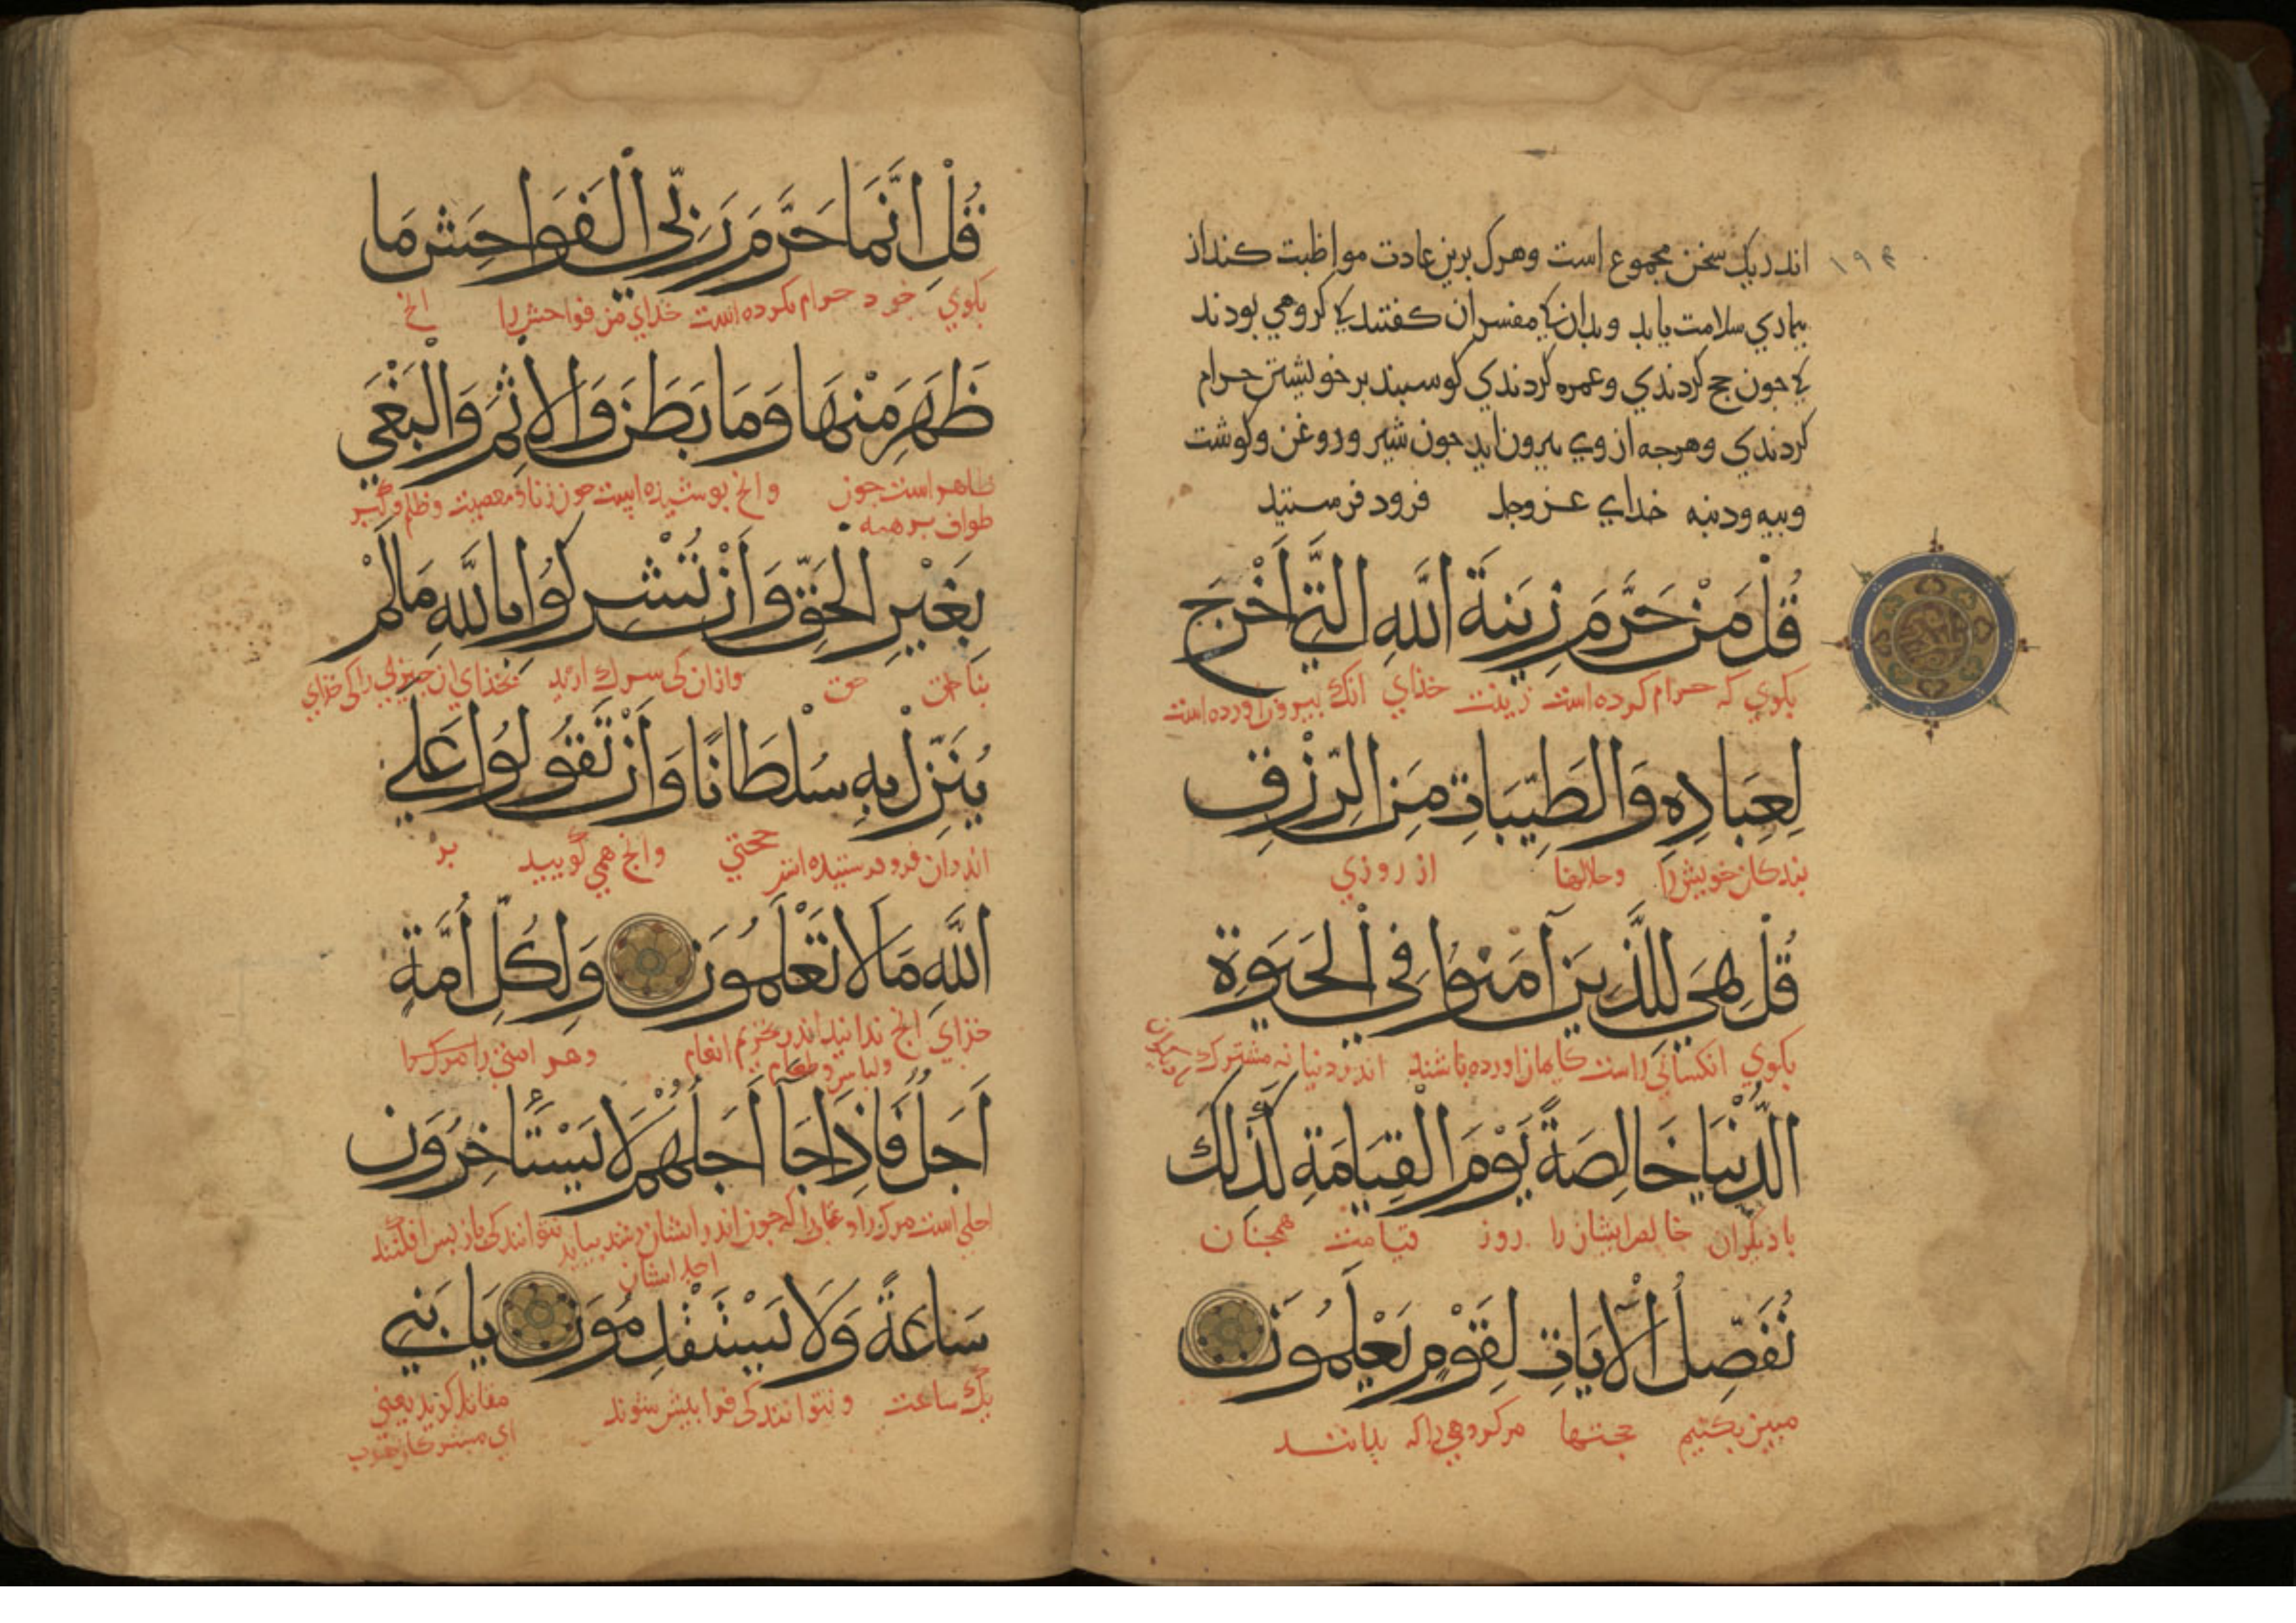 ۱۹۴
اندر یک سخن مجموع است وهرک برین عادت مواظبت کند از
بیماری سلامت یابد وبدان کی مفسران کفتند کی کروهی بودند
کی جون حج کردندی وعمره کردندی کوسبند بر خویشتن حرام
کردندی وهرجه از وی بیرون اید جون شیر وروغن وکوشت
وبیه ودنبه خدای عز وجل فرود فرستید
قُلْ مَنْ حَرَّمَ زِينَةَ اللَّهِ الَّتِي أَخْرَجَ
بکوی که حرام کرده است زینت خدای انک بیرون اورده است
لِعِبَادِهِ وَالطَّيِّبَاتِ مِنَ الرِّزْقِ
بندکان خویش را وحلالها از روزی
قُلْ هِيَ لِلَّذِينَ آمَنُوا فِي الْحَيَوةِ
بکوی انکسانی راست کایمان اورده باشند اندر دنیا نه مشترک
الدُّنْيَا خَالِصَةً يَوْمَ الْقِيَامَةِ كَذَلِكَ
با دیکران خالص ایشان را روز قیامت همجنان
نُفَصِّلُ الْآيَاتِ لِقَوْمٍ يَعْلَمُونَ
مبین بکنیم حجتها مر کروهی را که بدانند
قُلْ إِنَّمَا حَرَّمَ رَبِّيَ الْفَوَاحِشَ مَا
بکوی خود حرام بکرده است خدای من فواحش را انج
ظَهَرَ مِنْهَا وَمَا بَطَنَ وَالْإِثْمَ وَالْبَغْيَ
ظاهر است جون وانج بوشیده است جون زنا ومعصیت وظلم وکبر
طواف برهنه
بِغَيْرِ الْحَقِّ وَأَنْ تُشْرِكُوا بِاللَّهِ مَا لَمْ
بناحق حق وازان کی شرک ارید بخدای ان جیزی را کی خدای
يُنَزِّلْ بِهِ سُلْطَانًا وَأَنْ تَقُولُوا عَلَى
اندران فرو فرستیده است حجتی وانج همی کویید بر
اللَّهِ مَا لَا تَعْلَمُونَ وَلِكُلِّ أُمَّةٍ
خدای انج ندانید اندر تحریم انعام وهر امتی را مرک را
ولباس وطعام
أَجَلٌ فَإِذَا جَآ أَجَلُهُمْ لَا يَسْتَأْخِرُونَ
اجلی است مرک را جون اندر ایشان بیاید نتوانند کی باز بس افکنند
اجل ایشان
سَاعَةً وَلَا يَسْتَقْدِمُونَ يَا بَنِي
یک ساعت ونتوانند کی فرا بیش شوند مقاتل کوید یعنی
ای مشرکان عرب